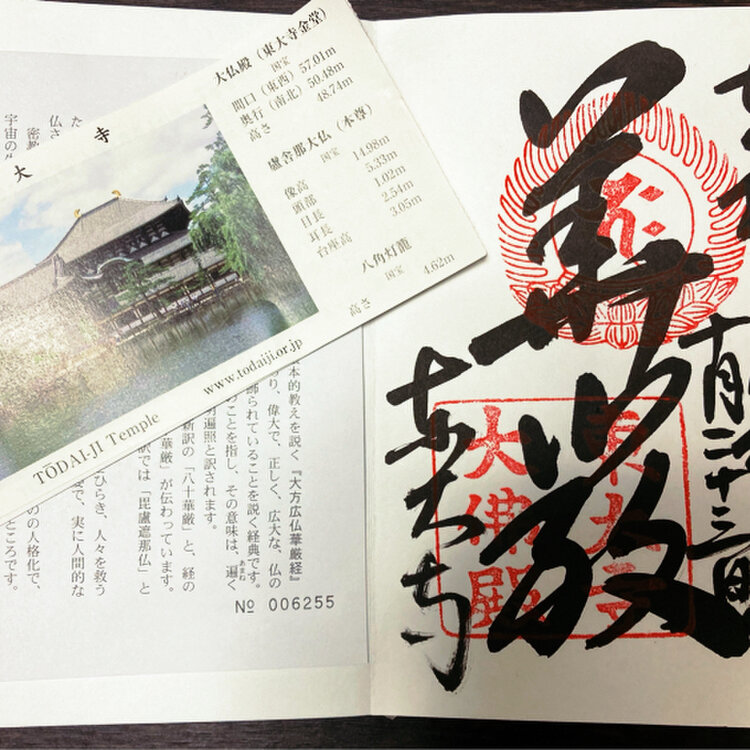 大仏殿（東大寺金堂）
国宝
間口（東西）57.01m
奥行（南北）50.48m
高さ 48.74m
盧舎那大仏（本尊）
国宝
像高 14.98m
頭部 5.33m
目長 1.02m
耳長 2.54m
台座高 3.05m
八角灯籠
国宝
高さ 4.62m
大寺
TŌDAI-JI Temple
www.todaiji.or.jp
本的教えを説く『大方広仏華厳経』
り、偉大で、正しく、広大な、仏の
飾られていることを説く経典です。
新訳の「八十華厳」と、経の
華厳」が伝わっています。
のことを指し、その意味は、遍く
あまね
明遍照と訳されます。
訳では「毘盧遮那仏」と
ひらき、人々を救う
のの人格化で、
で、実に人間的な
ところです。
た
仏さ
密教
宇宙の
№ 006255
華厳
東大寺
十月二十三日
東大寺
大佛殿